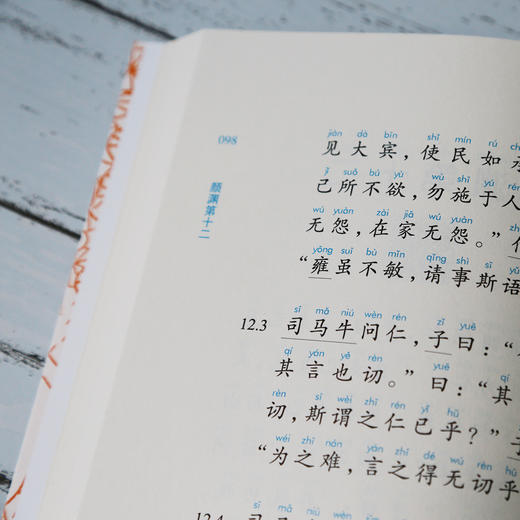 098
颜渊第十二
jiàn dà bīn shǐ mín rú
见大宾，使民如
jǐ suǒ bú yù wù shī yú rén
己所不欲，勿施于人
wú yuàn zài jiā wú yuàn
无怨，在家无怨。”
yōng suī bù mǐn qǐng shì sī yǔ
“雍虽不敏，请事斯语
sī mǎ niú wèn rén zǐ yuē
12.3 司马牛问仁，子曰：“
qí yán yě rèn yuē qí
其言也讱。”曰：“其
rèn sī wèi zhī rén yǐ hū
讱，斯谓之仁已乎？”
wéi zhī nán yán zhī dé wú rèn hū
“为之难，言之得无讱乎
sī mǎ niú wèn
12.4 司马牛问